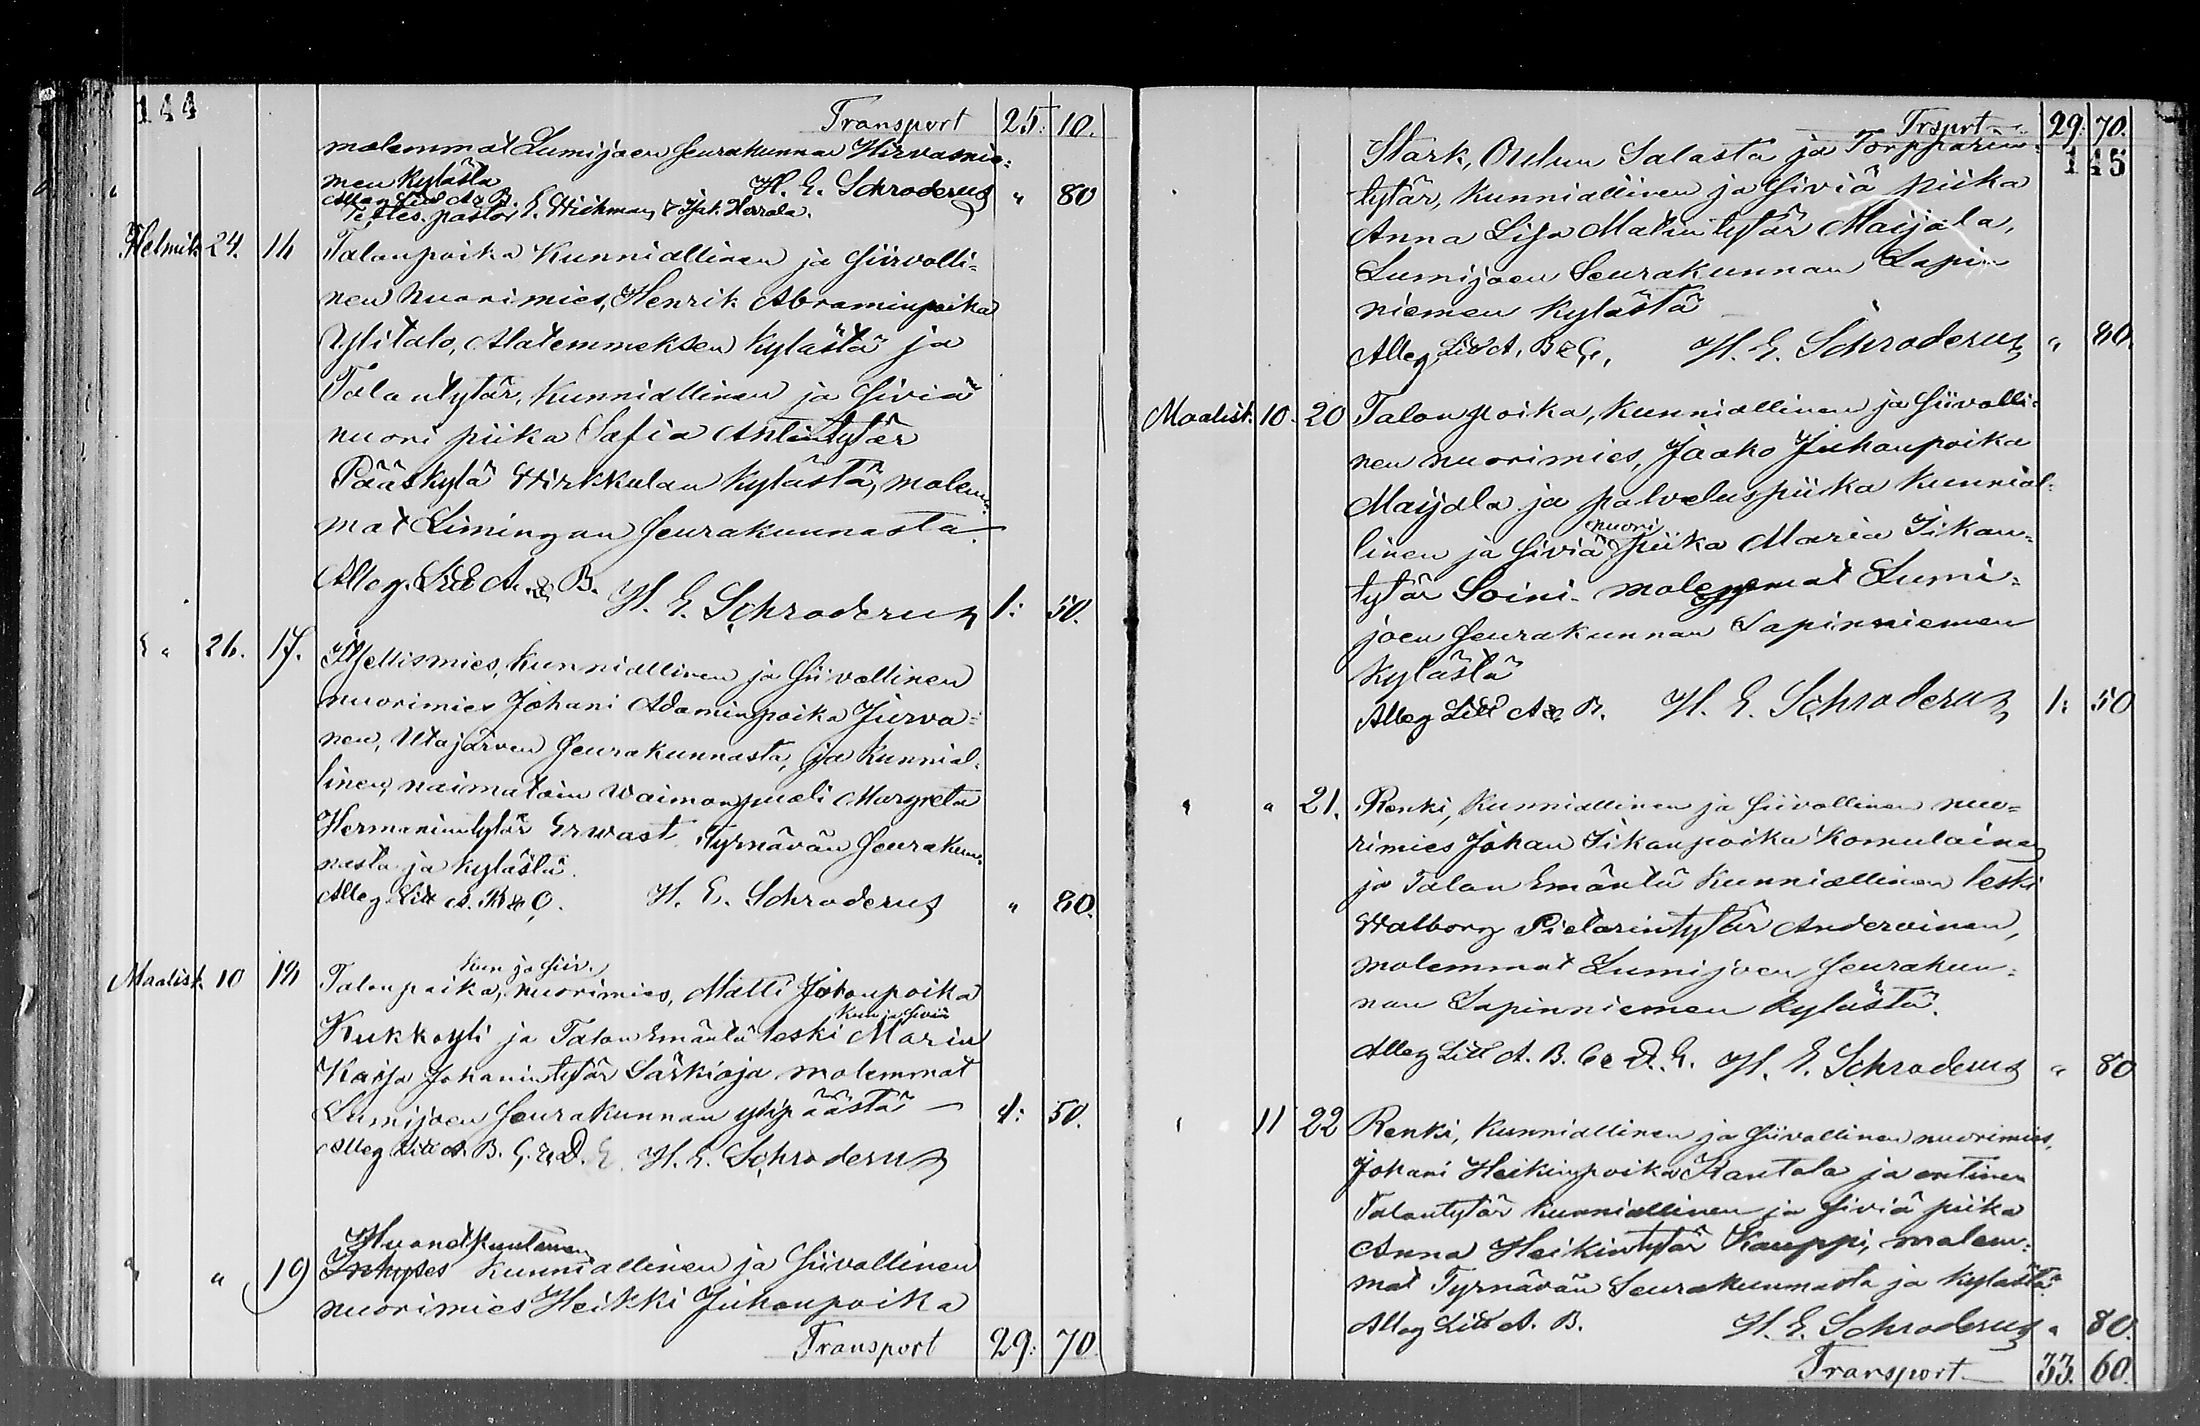 144
Transport 25: 10.
molemmat Lumijoen Seurakunnan Hirvasnie=
men kylästä H. E. Schroderus " 80
Alleg. Litt A & B.
Testes. pastor E. Wichman, & Jak. Herrala.
Helmik 24. 16 Talonpoika Kunniallinen ja Siivolli=
nen nuorimies, Henrik Abraminpoika
Ylitalo, Alatemmeksen kylästä ja
Talontytär, Kunniallinen ja Siviä
nuori piika Safia Antintytär
Pääskylä Hirkkulan kylästä, molem=
mat Limingan Seurakunnasta.
Alleg. Litt A. & B. H. E. Schroderus 1: 50.
" 26. 17. Itsellismies, kunniallinen ja Siivollinen
nuorimies Johani Adaminpoika Jurva=
nen, Utajärven Seurakunnasta, ja kunnial=
linen, naimatoin Waimonpuoli Margreta
Hermanintytär Erwast Tyrnävän Seurakun=
nasta ja kylästä.
Alleg Litt A. B & C. H. E. Schroderus " 80.
Maalisk. 10 18 Talonpoika, kun ja Siiv. nuorimies, Matti Johanpoika
Kukkoyli ja Talon Emäntä leski kun ja Siviä Maria
Kaisa Johanintytär Särkioja molemmat
Lumijoen Seurakunnan ylipäästä 1: 50.
Alleg Litt A. B. C. & D. E. H. E. Schroderus
" " 19 Huonekuntanen kunniallinen ja Siivollinen
nuorimies Heikki Juhanpoika
Transport 29: 70.
Trsprt 29: 70.
145
Stark, Oulun Salasta ja Torpparin=
tytär, kunniallinen ja Siviä piika
Anna Lisa Matintytär Maijala,
Lumijoen Seurakunnan Lapin
niemen kylästä
Alleg Litt A, B & C, H. E. Schroderus " 80.
Maalisk. 10. 20 Talonpoika, kunniallinen ja Siivolli=
nen nuorimies, Jaako Juhanpoika
Maijala ja palveluspiika kunnial=
linen ja Siviä nuori piika Maria Iikan=
tytär Soini. molemmat Lumi=
joen Seurakunnan Lapinniemen
kylästä
Alleg Litt A & B. H. E. Schroderus 1: 50
" " 21. Renki, kunniallinen ja Siivollinen nuo=
rimies Johan Iikanpoika Komulainen
ja Talon Emäntä kunniallinen leski
Walborg Pietarintytär Andervinen,
molemmat Lumijoen Seurakun=
nan Lapinniemen kylästä.
Alleg Litt A. B. C & D. E. H. E. Schroderus " 80
" 11 22 Renki, kunniallinen ja Siivollinen nuorimies,
Johani Heikinpoika Rantala ja entinen
Talontytär kunniallinen ja Siviä piika
Anna Heikintytär Kauppi, molem=
mat Tyrnävän Seurakunnasta ja kylästä
Alleg Litt A. B. H. E. Schroderus " 80.
Transport 33. 60.